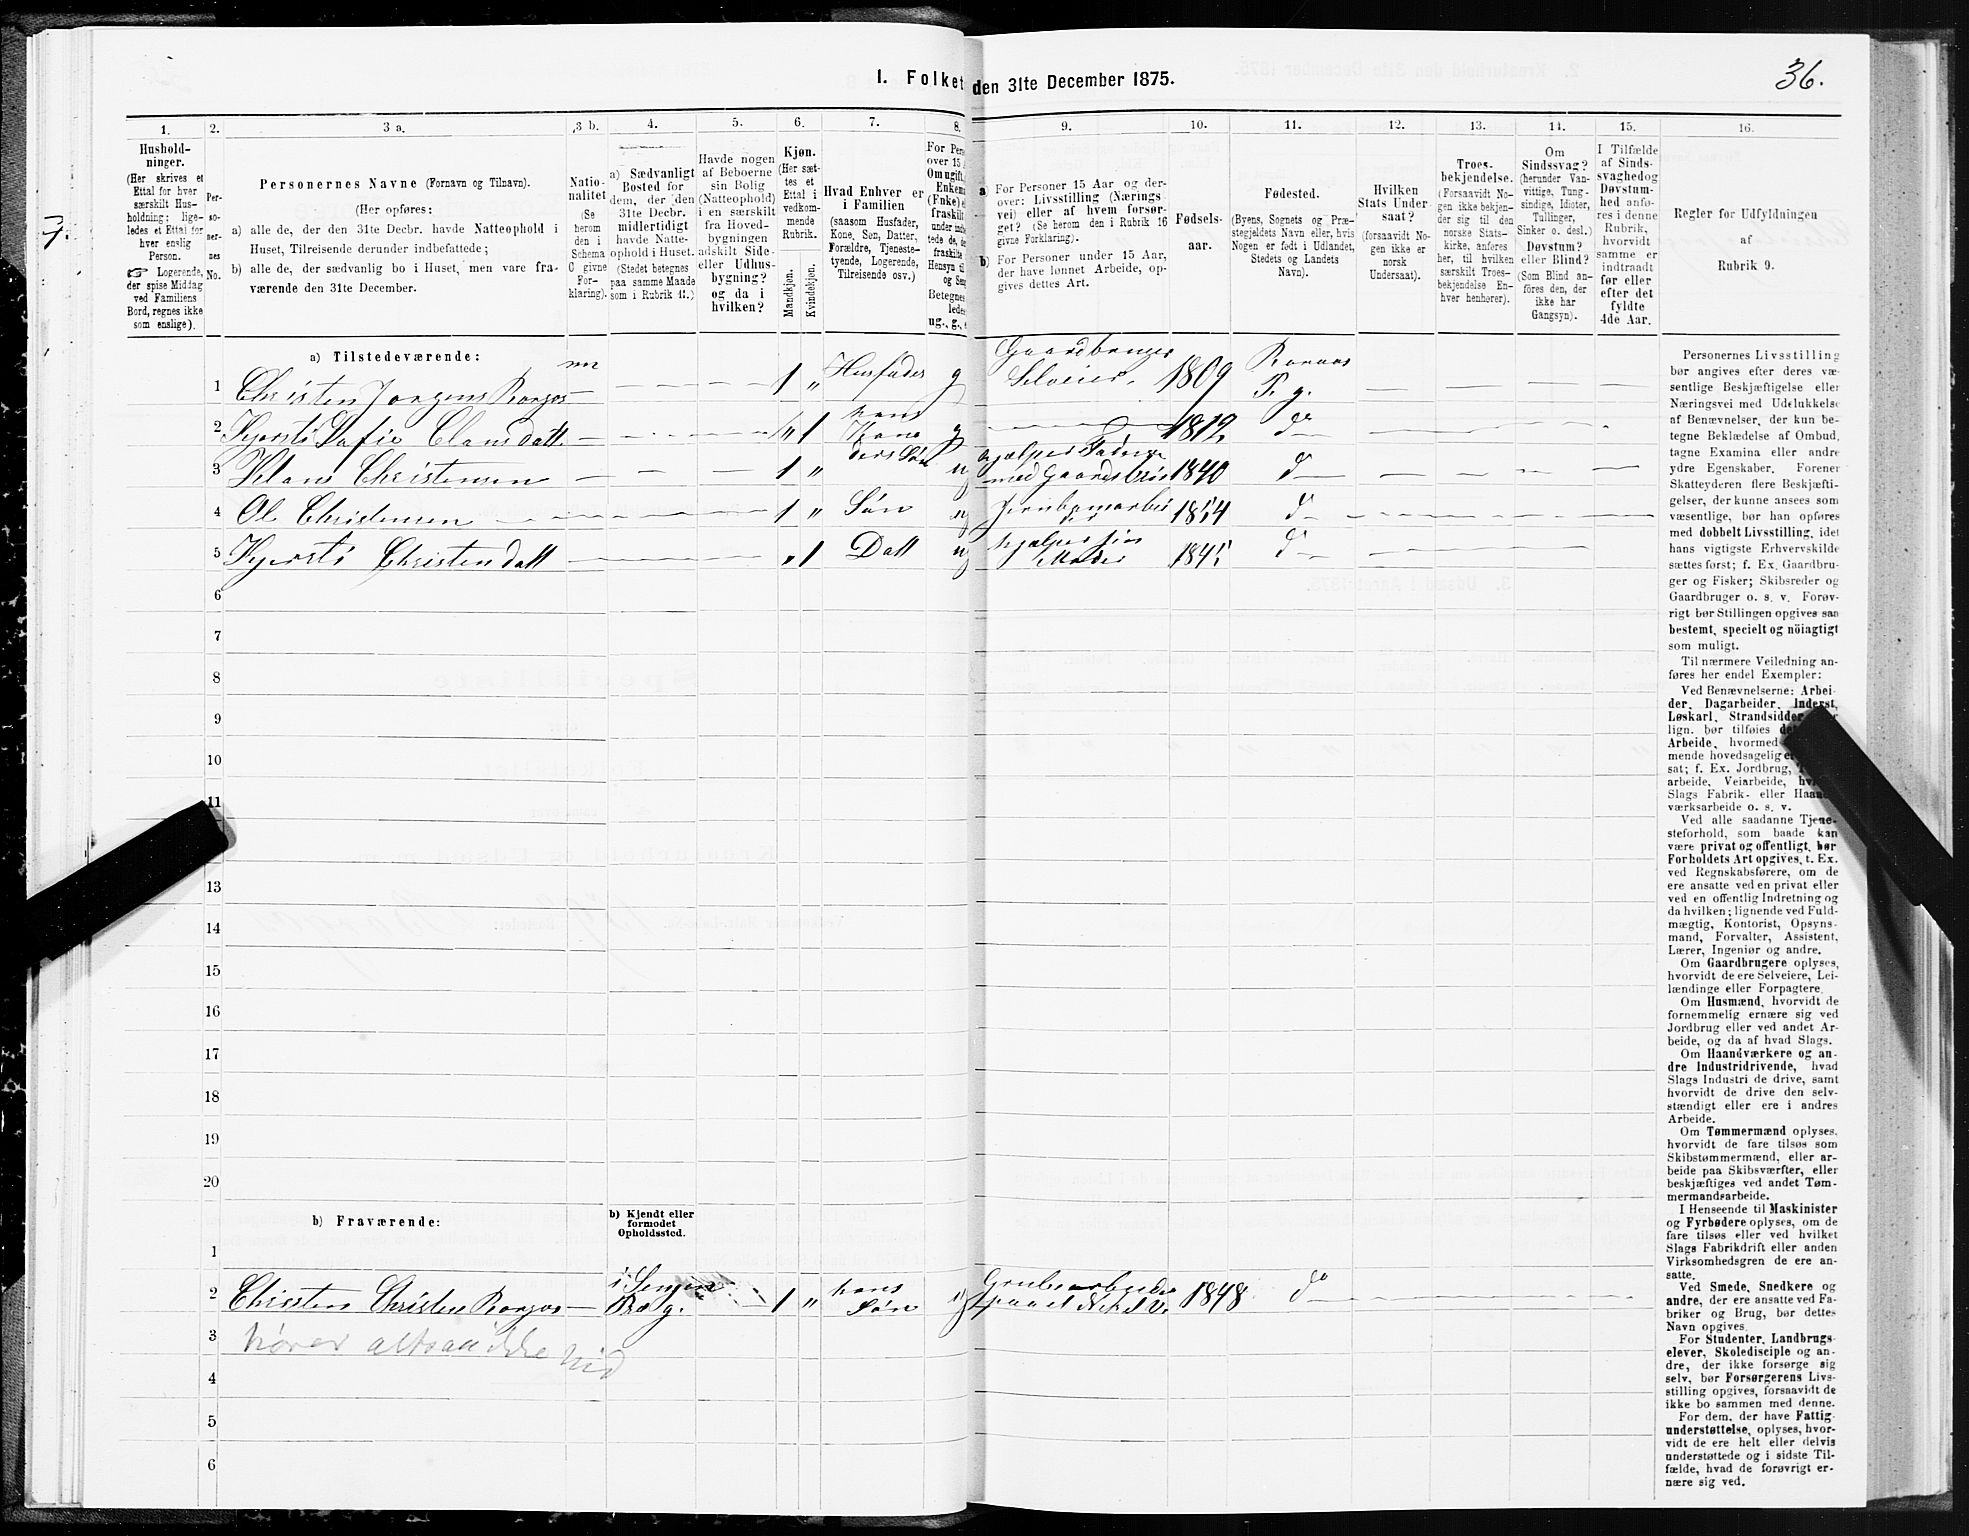 I. Folket den 31te December 1875.
36.
7.
1.
Hushold-
ninger.
(Her skrives et
Ettal for hver
særskilt Hus-
holdning; lige-
ledes et Ettal for
hver enslig
Person.
☞ Logerende,
der spise Middag
ved Familiens
Bord, regnes ikke
som enslige).
2.
Per-
so-
ner-
nes
No.
3 a.
Personernes Navne (Fornavn og Tilnavn).
(Her opføres:
a) alle de, der den 31te Decbr. havde Natteophold i
Huset, Tilreisende derunder indbefattede;
b) alle de, der sædvanlig bo i Huset, men vare fra-
værende den 31te December.
3 b.
Natio-
nalitet
(Se
herom
den i
Schema
C givne
For-
klaring).
4.
a) Sædvanligt
Bosted for
dem, der den
31te Decbr.
midlertidigt
havde Natte-
ophold i Huset.
(Stedet betegnes
paa samme Maade
som i Rubrik 11.)
5.
Havde nogen
af Beboerne
sin Bolig
(Natteophold)
i en særskilt
fra Hoved-
bygningen
adskilt Side-
eller Udhus-
bygning?
og da i
hvilken?
6.
Kjøn.
(Her sæt-
tes et
Ettal i
vedkom-
mende
Rubrik.
Mandkjøn.
Kvindekjøn.
7.
Hvad Enhver er
i Familien
(saasom Husfader,
Kone, Søn, Datter,
Forældre, Tjeneste-
tyende, Logerende,
Tilreisende osv.)
8.
For Pers
over 15 A
Om ugift,
Enkem
(Enke) e
fraskilt
9.
a
For Personer 15 Aar og der-
over: Livsstilling (Nærings-
vei) eller af hvem forsør-
get? (Se herom den i Rubrik 16
givne Forklaring).
b
For Personer under 15 Aar,
der have lønnet Arbeide, op-
gives dettes Art.
10.
Fødsels-
aar.
11.
Fødested.
(Byens, Sognets og Præ-
stegjeldets Navn eller, hvis
Nogen er født i Udlandet,
Stedets og Landets
Navn).
12.
Hvilken
Stats Under-
saat?
(forsaavidt No-
gen ikke er
norsk
Undersaat).
13.
Troes-
bekjendelse.
(Forsaavidt No-
gen ikke bekjen-
der sig til den
norske Stats-
kirke, anføres
her, til hvilken
særskilt Troes-
bekjendelse En-
hver henhører).
14.
Om
Sindssvag?
(herunder Van-
vittige, Tung-
sindige, Idioter,
Tullinger,
Sinker o. desl.)
Døvstum?
eller Blind?
(Som Blind an-
føres den, der
ikke har
Gangsyn).
15.
I Tilfælde
af Sinds-
svaghed og
Døvstum-
hed anfø-
res i denne
Rubrik,
hvorvidt
samme er
indtraadt
før eller
efter det
fyldte
4de Aar.
16.
Regler for Udfyldningen
af
Rubrik 9.
a) Tilstedeværende:
1 Christen Jorgens Rorgos nn 1 „ Husfader g Gaardbruger Selveier. 1809 Roraas P. g.
2 Kjersti Sofie Clausdatt „ 1 hans Kone g 1812 do
3 Klaus Christensen 1 „ ders Søn ug hjelper Fader med Gaardsbrug 1840 d
4 Ole Christensen 1 „ Søn ug 1854 d
5 Kjersti Christendatt „ 1 Datt ug hjelper sin Moder 1845 d
6
7
8
9
10
11
13
14
15
16
17
18
19
20
b) Fraværende:
b) Kjendt eller
formodet
Opholdssted.
1
2 Christen Christen Rorgos 1 „ hans Søn ug Grubearbeider 1848 do
3 hører altsaa ikke hid
4
5
6
Personernes Livsstilling
bør angives efter deres væ-
sentlige Beskjæftigelse eller
Næringsvei med Udelukkelse
af Benævnelser, der kun be-
tegne Beklædelse af Ombud,
tagne Examina eller andre
ydre Egenskaber. Forener
Skatteyderen flere Beskjæfti-
gelser, der kunne ansees som
væsentlige, bør han opføres
med dobbelt Livsstilling, idet
hans vigtigste Erhvervskilde
sættes først; f. Ex. Gaardbru-
ger og Fisker; Skibsreder og
Gaardbruger o. s. v. Forøv-
rigt bør Stillingen opgives saa
bestemt, specielt og nöiagtigt
som muligt.
Til nærmere Veiledning an-
føres her endel Exempler:
Ved Benævnelserne: Arbei-
der, Dagarbeider, Inderst,
Løskarl, Strandsidder
lign. bør tilføies
Arbeide, hvormed
mende hovedsagelig
sat; f. Ex. Jordbrug,
arbeide, Veiarbeide,
Slags Fabrik- eller Haand-
værksarbeide o. s. v.
Ved alle saadanne Tjene-
steforhold, som baade kan
være privat og offentligt, bør
Forholdets Art opgives, t. Ex.
ved Regnskabsførere, om de
ere ansatte ved en privat eller
ved en offentlig Indretning og
da hvilken; lignende ved Fuld-
mægtig, Kontorist, Opsyns-
mand, Forvalter, Assistent,
Lærer, Ingeniør og andre.
Om Gaardbrugere oplyses,
hvorvidt de ere Selveiere, Lei-
lændinge eller Forpagtere.
Om Husmænd, hvorvidt de
fornemmelig ernære sig ved
Jordbrug eller ved andet Ar-
beide, og da af hvad Slags.
Om Haandværkere og an-
dre Industridrivende, hvad
Slags Industri de drive, samt
hvorvidt de drive den selv-
stændigt eller ere i andres
Arbeide.
Om Tømmermænd oplyses,
hvorvidt de fare tilsøs som
Skibstømmermænd, eller ar-
beide paa Skibsværfter, eller
beskjæftiges ved andet Tøm-
mermandsarbeide.
I Henseende til Maskinister
og Fyrbødere oplyses, om de
fare tilsøs eller ved hvilket
Slags Fabrikdrift eller anden
Virksomhedsgren de ere an-
satte.
Ved Smede, Snedkere og
andre, der ere ansatte ved Fa-
briker og Brug, bør dettes
Navn opgives.
For Studenter, Landbrugs-
elever, Skoledisciple og an-
dre, der ikke forsørge sig
selv, bør Forsørgerens Livs-
stilling opgives, forsaavidt de
ikke bo sammen med denne.
For dem, der have Fattig-
understøttelse, oplyses, hvor-
vidt de ere helt eller delvis
understøttede og i sidste Til-
fælde, hvad de forøvrigt er-
nære sig ved.